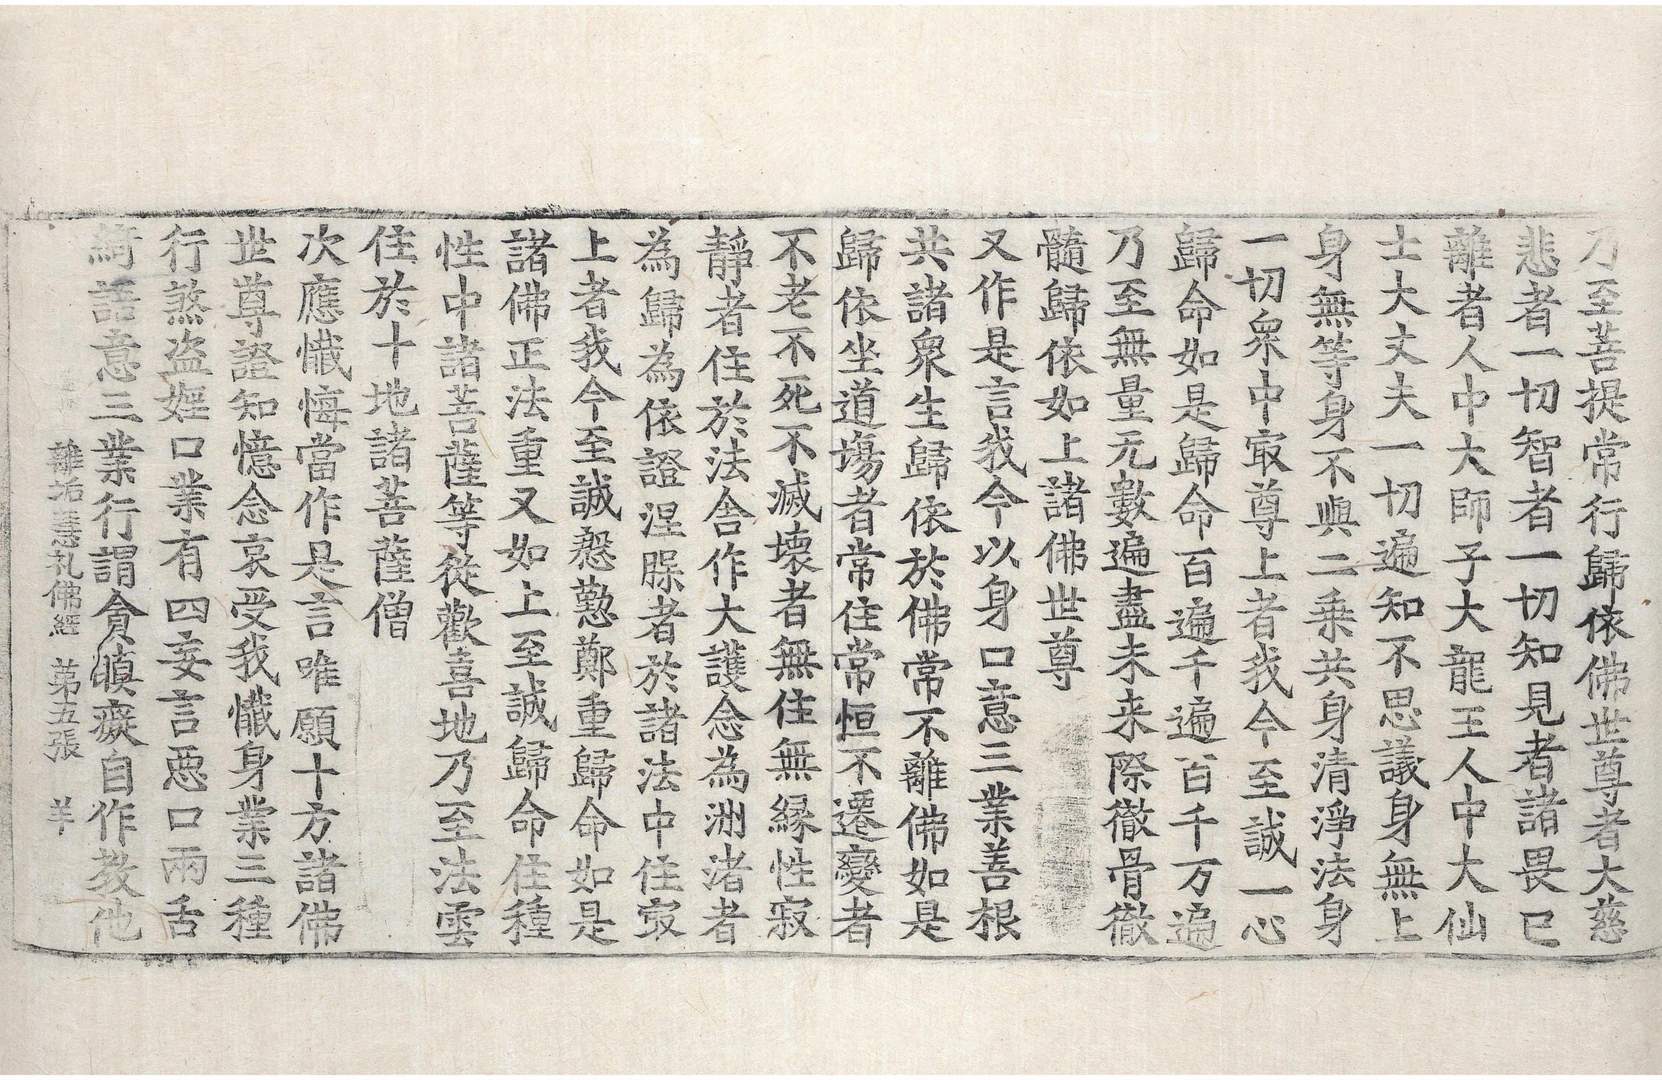 乃至菩提常行歸依佛世尊者大慈
悲者一切智者一切知見者諸畏已
離者人中大師子大龍王人中大仙
士大丈夫一切遍知不思議身無上
身無等身不與二乘共身清淨法身
一切衆中㝡尊上者我今至誠一心
歸命如是歸命百遍千遍百千万遍
乃至無量无數遍盡未来際徹骨徹
髓歸依如上諸佛世尊
又作是言我今以身口意三業善根
共諸衆生歸依於佛常不離佛如是
歸依坐道場者常住常恒不遷變者
不老不死不滅壞者無住無緣性寂
靜者住於法舍作大護念為洲渚者
為歸為依證涅𦠆者於諸法中住㝡
上者我今至誠慇懃鄭重歸命如是
諸佛正法重又如上至誠歸命住種
性中諸菩薩等從歡喜地乃至法雲
住於十地諸菩薩僧
次應懺悔當作是言唯願十方諸佛
世尊證知憶念哀受我懺身業三種
行煞盜婬口業有四妄言惡口兩舌
綺語意三業行謂貪瞋癡自作教他
離垢慧礼佛經 第五張 羊